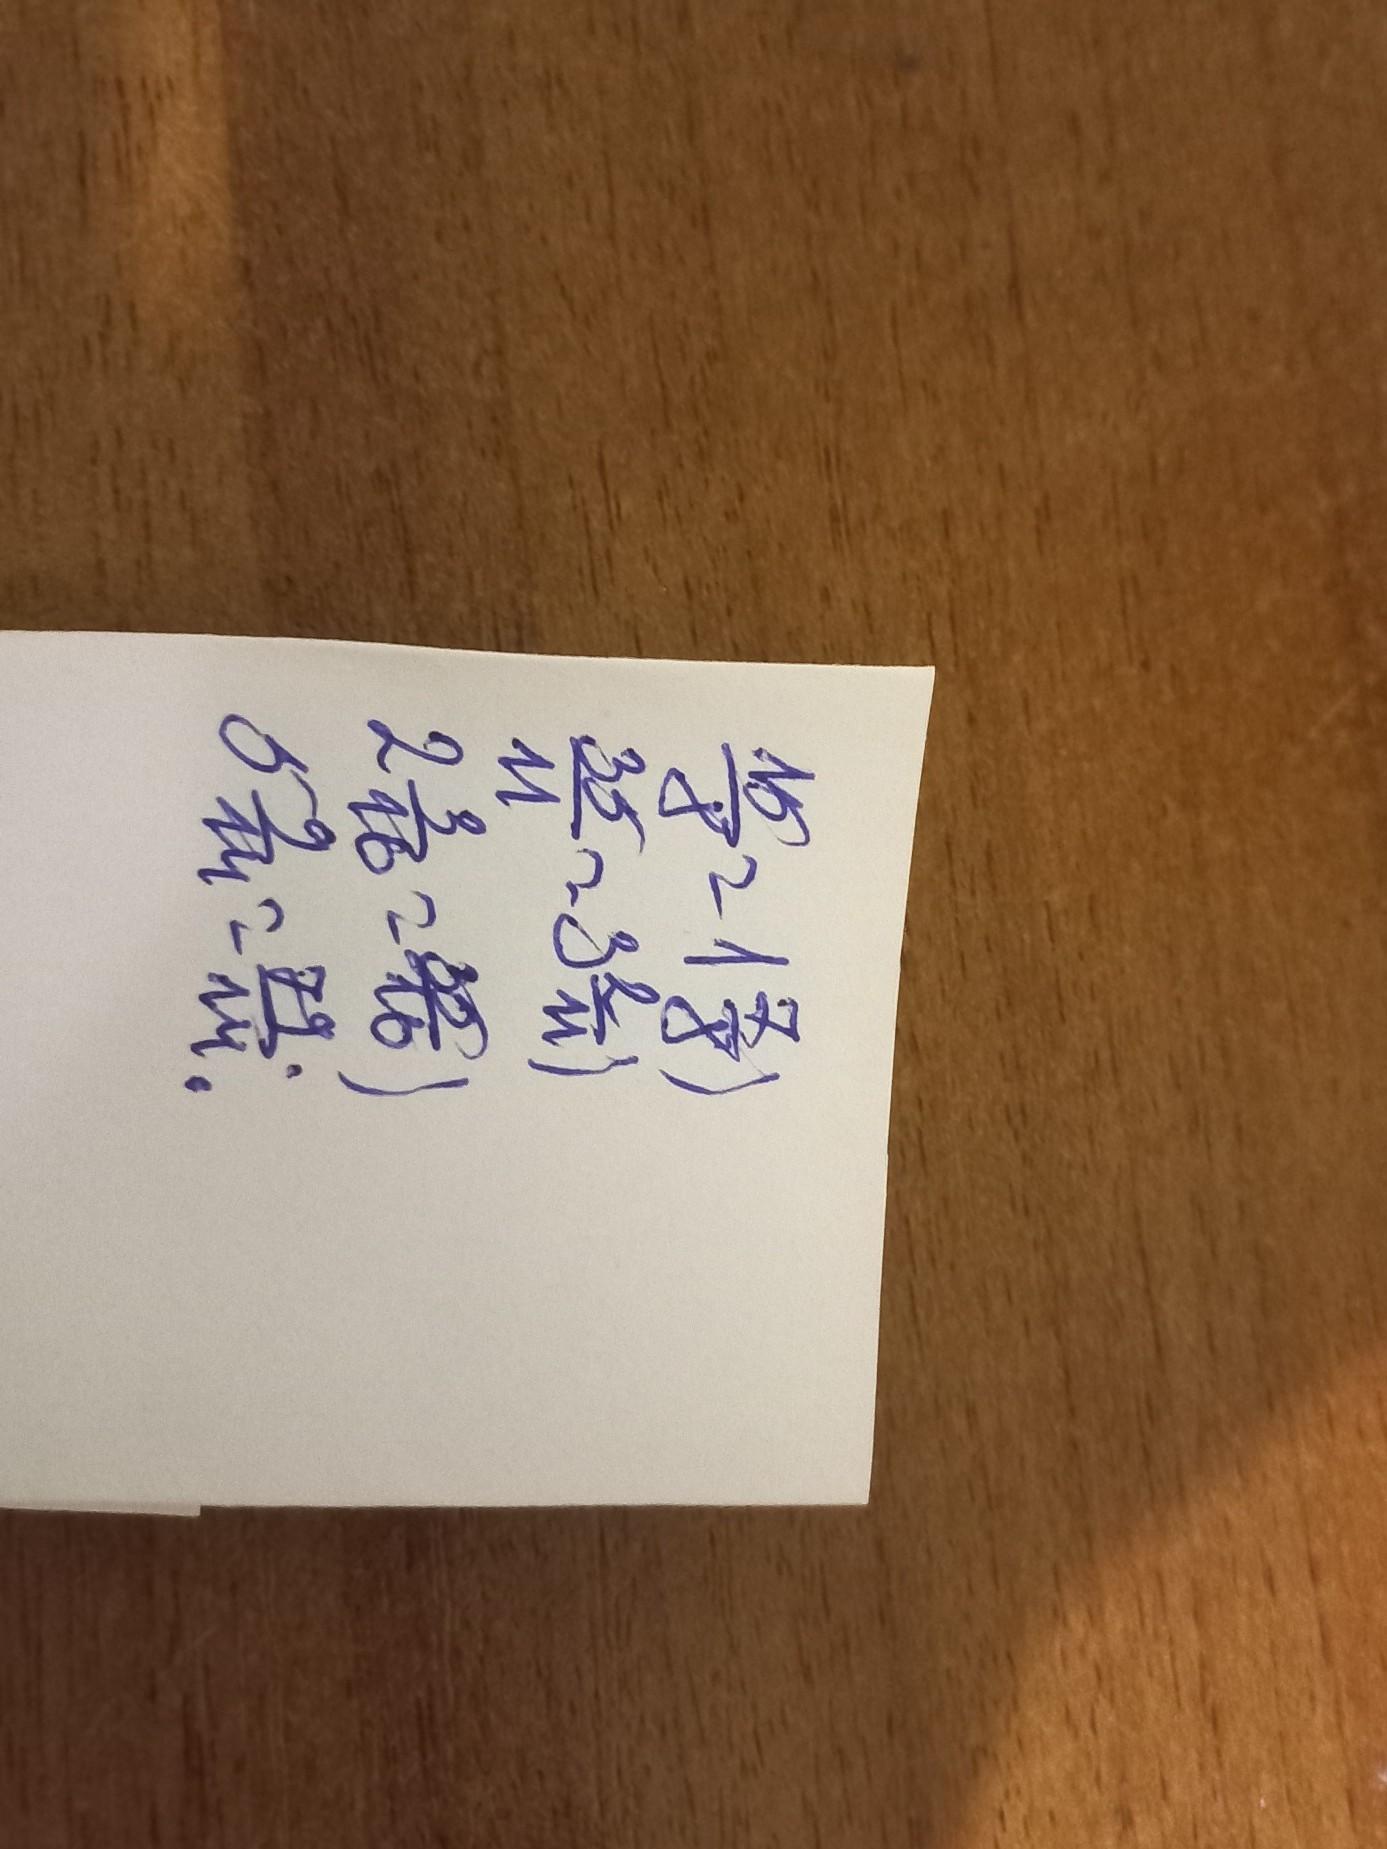 15/8 = 1 7/8)
35/11 = 3 2/11)
2 3/16 = 35/16)
5 9/14 = 79/14: